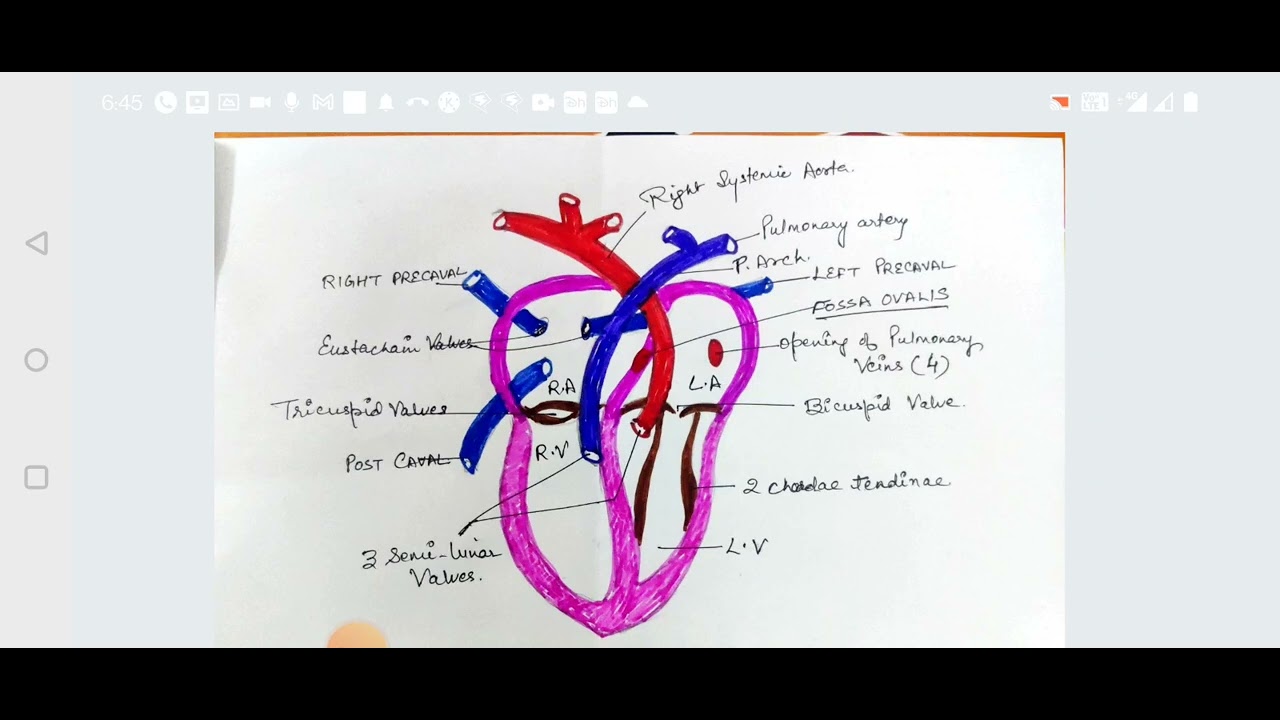 6:45
Right Systemic Aorta.
Pulmonary artery
P. Arch.
RIGHT PRECAVAL
LEFT PRECAVAL
FOSSA OVALIS
Eustachain Valves
opening of Pulmonary
Veins (4)
R.A
L.A
Tricuspid Valves
Bicuspid Valve.
R.V
POST CAVAL
2 chordae tendinae
3 Semi-lunar
Valves.
L.V